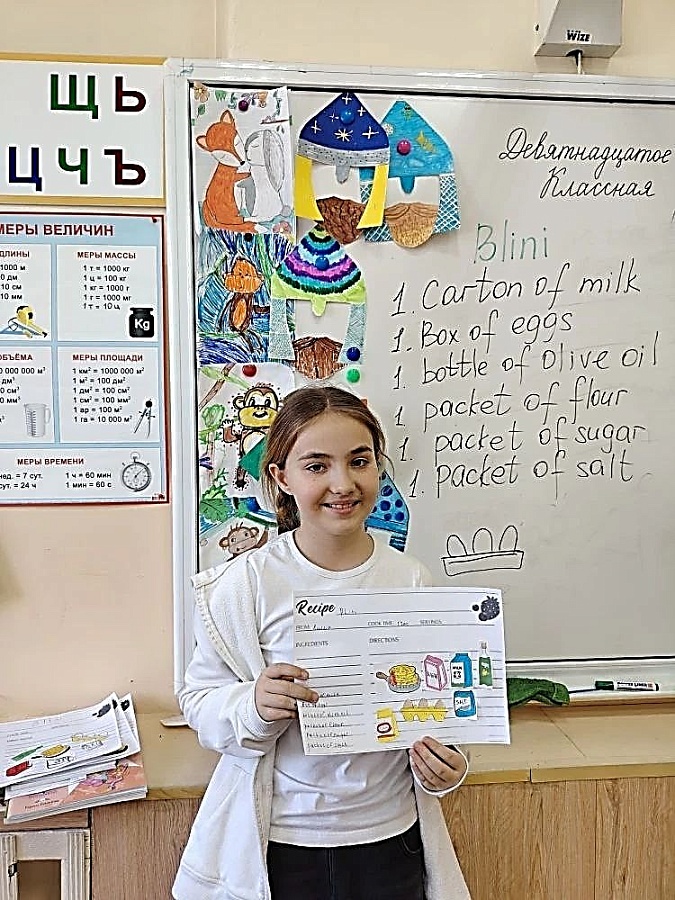 Щ Ь
Ц Ч Ъ
МЕРЫ ВЕЛИЧИН
ДЛИНЫ
1000 м
10 дм
10 см
10 мм
МЕРЫ МАССЫ
1 т = 1000 кг
1 ц = 100 кг
1 кг = 1000 г
1 г = 1000 мг
1 т = 10 ц
Kg
ОБЪЁМА
МЕРЫ ПЛОЩАДИ
1 км² = 1000 000 м²
1 м² = 100 дм²
1 дм² = 100 см²
1 см² = 100 мм²
1 ар = 100 м²
1 га = 10 000 м²
МЕРЫ ВРЕМЕНИ
нед. = 7 сут.
сут. = 24 ч
1 ч = 60 мин
1 мин = 60 с
WIZE
Девятнадцатое
Классная
Blini
1. Carton of milk
1. Box of eggs
1. bottle of Olive oil
1 packet of flour
1. packet of sugar
1. packet of salt
Recipe Blini
FROM
COOK TIME
SERVINGS
INGREDIENTS
DIRECTIONS